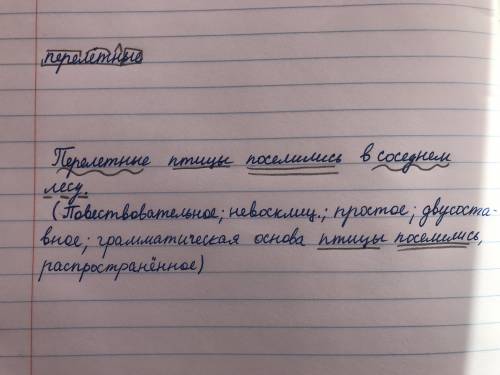 перелетные
Перелетные птицы поселились в соседнем
лесу.
(Повествовательное; невосклиц.; простое; двусоста-
вное; грамматическая основа птицы поселились,
распространённое)